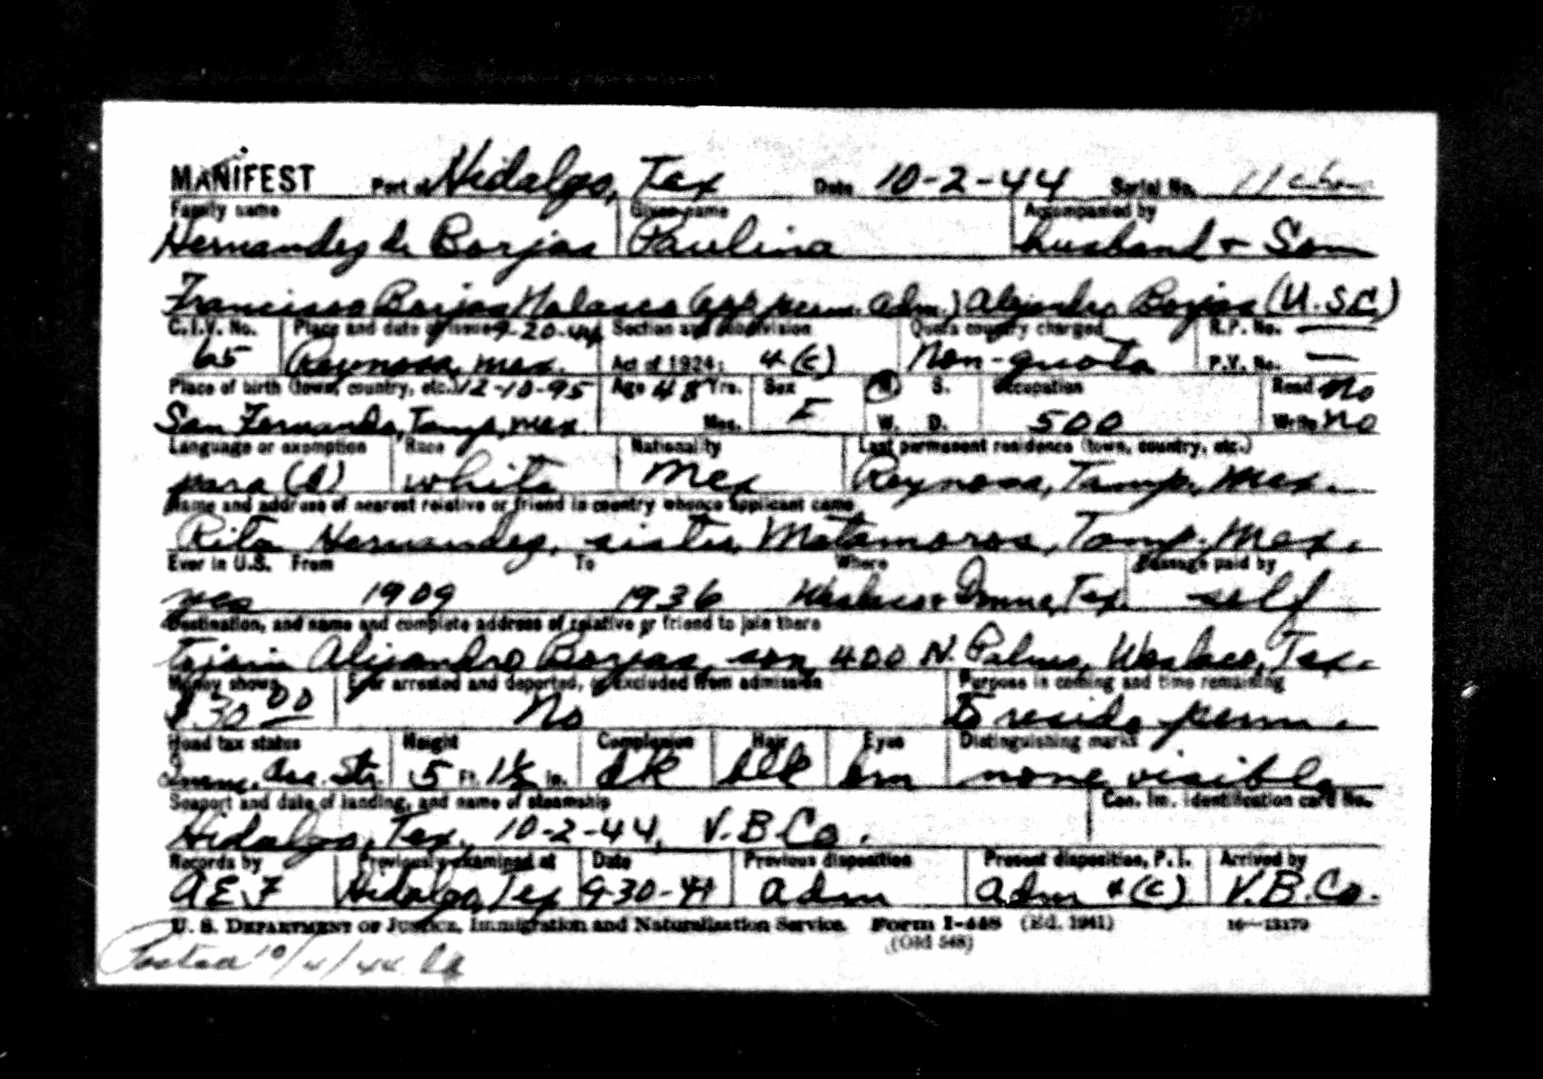 MANIFEST Port of Hidalgo, Tex Date 10-2-44 Serial No.
Family name Given name Accompanied by
Hernandez de Borjas Paulina husband + Son
Francisco Borjas Nolasco (app perm. adm.) Alejandro Borjas (U.S.C.)
C.I.V. No. Place and date of issue 9-20-44 Section and subdivision Quota country charged R.P. No. —
65 Reynosa, Mex. Act of 1924: 4(c) Non-quota P.V. No. —
Place of birth (town, country, etc.) 12-10-95 Age 48 Yrs. Sex M. S. Occupation Read No
San Fernando, Tamps, Mex. Mos. F W. D. 500 Write No
Language or exemption Race Nationality Last permanent residence (town, country, etc.)
para (d) white Mex Reynosa, Tamp. Mex.
Name and address of nearest relative or friend in country whence applicant came
Rita Hernandez, sister, Matamoros, Tamp. Mex.
Ever in U.S. From To Where Passage paid by
yes 1909 1936 Weslaco + Donna, Tex. self
Destination, and name and complete address of relative or friend to join there
to join Alejandro Borjas, son, 400 N. Palmas, Weslaco, Tex.
Money shown Ever arrested and deported, or excluded from admission Purpose in coming and time remaining
$30 00 No to reside perm.
Head tax status Height Complexion Hair Eyes Distinguishing marks
Str. 5 Ft. 1½ In. dk blk brn none visible
Seaport and date of landing, and name of steamship Con. Im. Identification card No.
Hidalgo, Tex., 10-2-44, V.B.Co.
Records by Previously examined at Date Previous disposition Present disposition, P. I. Arrived by
AEF Hidalgo, Tex 9-30-44 adm adm 4(c) V.B.Co.
U. S. DEPARTMENT OF JUSTICE, Immigration and Naturalization Service. Form I-448 (Ed. 1941) 16—13179
(Old 548)
Posted 10/4/44